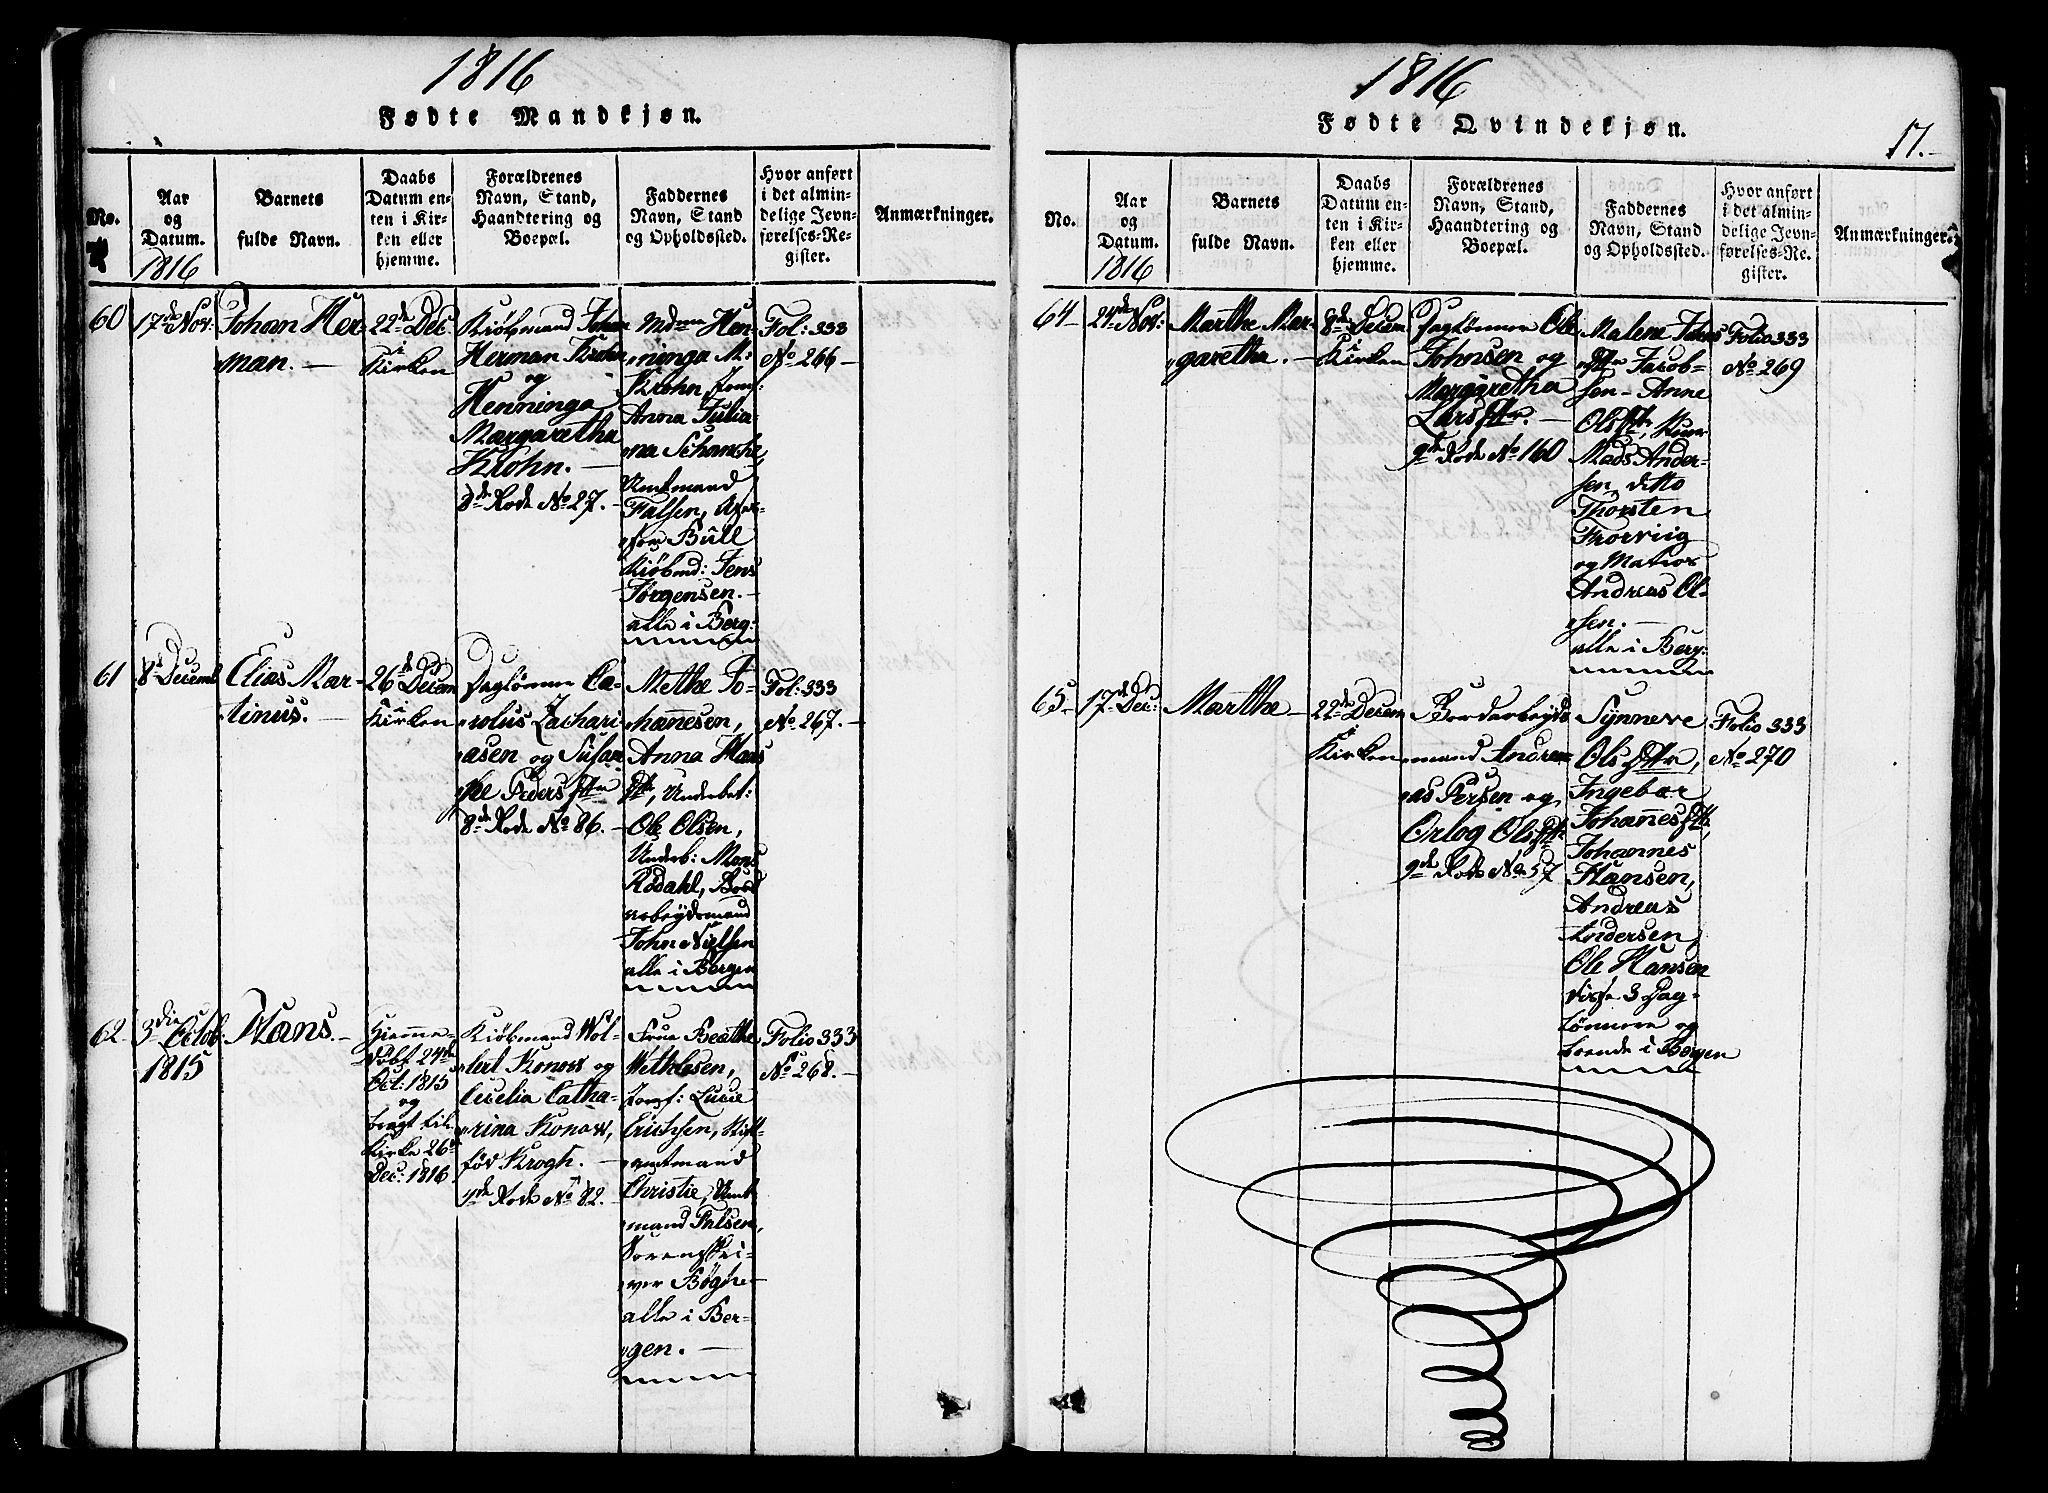 1816
Fødte Mandkjøn.
No.
Aar
og
Datum.
1816
Barnets
fulde Navn.
Daabs
Datum en-
ten i Kir-
ken eller
hjemme.
Forældrenes
Navn, Stand,
Haandtering og
Boepæl.
Faddernes
Navn, Stand
og Opholdssted.
Hvor anført
i det almin-
delige Jevn-
førelses-Re-
gister.
Anmærkninger.
60
17de Nov:
Johan Her
man.
22de Dec:
i
Kirken
Kiöbmand Johan
Herman Krohn
og
Henninga
Margaretha
Krohn.
8de Rode No 27.
Mdme Hen-
ninga M:
Krohn, Jomf:
Anna Julia-
na Schancke,
Amtmand
Falsen,
Bull
Kiöbmd: Jens
Jørgensen.
alle i Berg:
Fol: 333
No 266
61
8de Decemb
Elias Mar-
tinus.
26de Decem
i
Kirken
Daglönner Ca-
rolus Zachari
asen og Susan
ne Peders Dttr
8de Rode No 86.
Methe Jo-
hannesen,
Anna Hans
Dtt, Underbet:
Ole Olsen,
Underb: Mons
Rödahl, Bord
arbeydsmand
John Nielsen
alle i Bergen
Fol: 333
No 267.
62
3die Octob.
1815
Hans.
Hjemme-
döbt 24de
Oct: 1815
og
bragt til
Kirke 26de
Dec: 1816
Kiöbmand Wol-
lert Konow og
Cecelia Catha-
rina Konow,
föd Krogh.
4de Rode No 82.
Frue Beathe
Methlesen,
Jomf: Lucie
Erichsen, Stift-
amtmand
Christie, Amt
mand Falsen,
Sorenskri-
ver Bøghe
alle i Ber-
gen.
Folio 333
No 268.
1816
Fødte Qvindekjøn.
17.
No.
Aar
og
Datum.
1816
Barnets
fulde Navn.
Daabs
Datum en-
ten i Kir-
ken eller
hjemme.
Forældrenes
Navn, Stand,
Haandtering og
Boepæl.
Faddernes
Navn, Stand
og Opholdssted.
Hvor anført
i det almin-
delige Jevn-
førelses-Re-
gister.
Anmærkninger.
64
24de Nov:
Marthe Mar-
garetha.
8de Decem
i
Kirken
Daglönner Ole
Johnsen og
Margaretha
Lars Dttr.
9de Rode No 160
Malene
Jacob-
sen - Anne
Ols Dtt,
Mads Ander-
sen, ditto
Thorsten
og Matros
Andreas Ol-
sen.
alle i Berg:
Folio 333
No 269
65
17de Dec:
Marthe
22de Decem
i
Kirken
Bordarbeyds
mand Andre
as Persen og
Orlog Ols Dtt.
9de Rode No 57
Synneve
Ols Dttr,
Ingebar
Johannes Dtt,
Johannes
Hansen,
Andreas
Andersen,
Ole Hansen
disse 3 Dag-
lönnere og
boende i Bergen
Folio 333
No 270